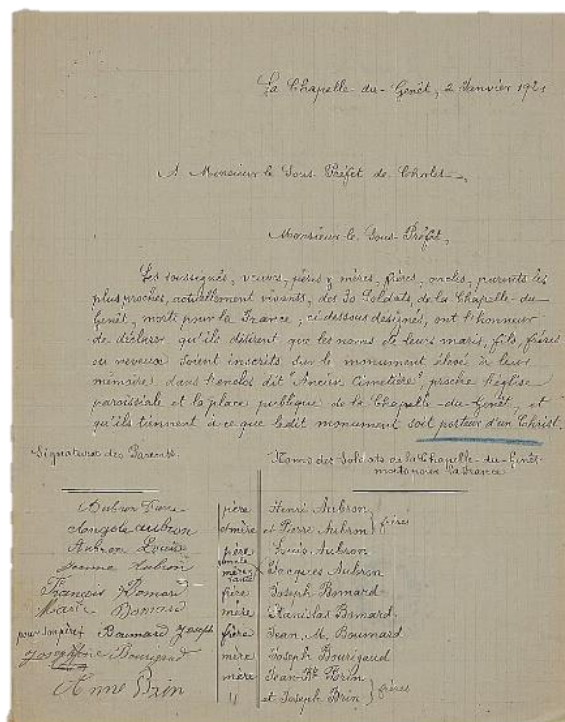 La Chapelle-du-Genêt, 2 Janvier 1921
A Monsieur le Sous-Préfet de Cholet
Monsieur le Sous-Préfet,
Les soussignés, veuves, pères & mères, frères, oncles, parents les
plus proches, actuellement vivants, des 30 Soldats, de la Chapelle-du-
Genêt, morts pour la France, ci dessous désignés, ont l'honneur
de déclarer qu'ils désirent que les noms de leurs maris, fils, frères
ou neveux soient inscrits sur le monument élevé à leur
mémoire dans l'enclos dit "Ancien Cimetière", proche l'église
paroissiale et la place publique de la Chapelle-du-Genêt, et
qu'ils tiennent à ce que ledit monument soit porteur d'un Christ.
Signature des Parents. Noms des Soldats de la Chapelle-du-Genêt
morts pour la France
Aubron père Henri Aubron
Angèle Aubron mère et Pierre Aubron } frères
Aubron Louis père Louis Aubron
Jeanne Aubron mère Jacques Aubron
François Bomard frère Joseph Bomard
Marie Bomard mère Stanislas Bomard
pour son père Baumard Joseph frère Jean M. Baumard
Joséphine Bourigaud mère Joseph Bourigaud
mère Jean-Bte Brin
Anne Brin " et Joseph Brin } frères